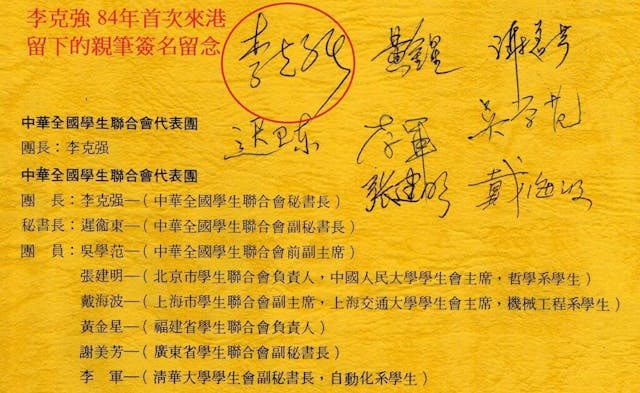 李克強 84年首次來港
留下的親筆簽名留念
李克强 黄金星 谢美芳
迟卫东 李军 吴学范
张建明 戴海波
中華全國學生聯合會代表團
團長：李克强
中華全國學生聯合會代表團
團　長：李克强—（中華全國學生聯合會秘書長）
秘書長：遲衞東—（中華全國學生聯合會副秘書長）
團　員：吳學范—（中華全國學生聯合會前副主席）
張建明—（北京市學生聯合會負責人，中國人民大學學生會主席，哲學系學生）
戴海波—（上海市學生聯合會副主席，上海交通大學學生會主席，機械工程系學生）
黃金星—（福建省學生聯合會負責人）
謝美芳—（廣東省學生聯合會副秘書長）
李　軍—（淸華大學學生會副秘書長，自動化系學生）